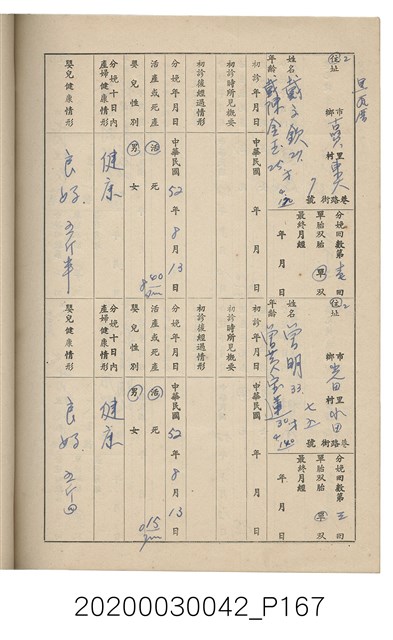 住址
鄉市
村里
街路巷
號
7
姓名
年齡
戴文欽 27
戴陳金玉 25才
分娩回數第 壹 回
單胎双胎 單 双
最終月經 年 月 日
初診年月日 中華民國 年 月 日
初診時所見概要
初診後經過情形
分娩年月日 中華民國 52 年 8 月 13 日
活產或死產 活 死
嬰兒性別 男 女
分娩十日內產婦健康情形 健康
嬰兒健康情形 良好 五斤半
住址
鄉市
村里
街路巷
號
七五
姓名
年齡
曾明 33
30才
分娩回數第 三 回
單胎双胎 單 双
最終月經 年 月 日
初診年月日 中華民國 年 月 日
初診時所見概要
初診後經過情形
分娩年月日 中華民國 52 年 8 月 13 日
活產或死產 活 死
嬰兒性別 男 女
分娩十日內產婦健康情形 健康
嬰兒健康情形 良好
20200030042_P167